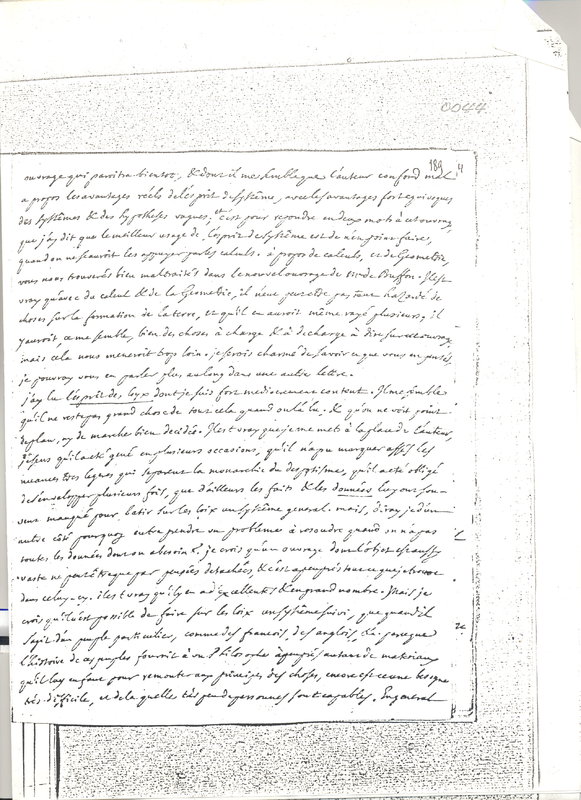 0044
189 4
ouvrage qui parroitra bientot, & dont il me semble que l'auteur confond mal
a propos les avantages réels de l'esprit de systême, avec les avantages fort equivoques
des systêmes & des hypotheses vagues, et c'est pour repondre en deux mots à cet ouvrage
que j'ay dit que le meilleur usage de l'esprit de systême est de n'en point faire,
quand on ne scauroit les appuyer par les calculs. à propos de calculs, et de Geometrie,
vous nous trouverés bien maltraités dans le nouvel ouvrage de Mr de Buffon. Il est
vray qu'avec du calcul & de la Geometrie, il n'eut peut etre pas tant hazardé de
choses sur la formation de la terre, et qu'il en auroit même rayé plusieurs, il
y auroit, ce me semble, bien des choses à charge & à decharge à dire sur cet ouvrage
mais cela nous meneroit trop loin. je serois charmé de savoir ce que vous en pensés.
je pourray vous en parler plus au long dans une autre lettre.
j'ay lu l'esprit des loix dont je suis fort mediocrement content. Il me semble
qu'il ne reste pas grand chose de tout cela quand on l'a lu. & qu'on ne voit point
de plan, ny de marche bien decidée. Il est vray que je me mets à la place de l'auteur,
je sens qu'il a eté gené en plusieurs occasions, qu'il n'a pu marquer assés les
nuances tres legeres qui separent la monarchie du despotisme, qu'il a eté obligé
de s'envelopper plusieurs fois, que d'ailleurs les faits & les données luy ont sou-
vent manqué pour batir sur les loix un systême general. mais, diray je d'un
autre côté pourquoy entreprendre un problême à resoudre quand on n'a pas
toutes les données dont on a besoin? je crois qu'un ouvrage dont l'objet est aussy
vaste ne peut être que par pensées detachées, & c'est a peu prés tout ce que je trouve
dans celuy-cy. il est vray qu'il y en a d'excellentes & en grand nombre. Mais je
crois qu'il est possible de faire sur les loix un systême suivi, que quand il
s'agit d'un peuple particulier, comme des francois, des anglois, &c. parceque
l'histoire de ces peuples fournit à un Philosophe à peu prés autant de materiaux
qu'il luy en faut pour remonter aux principes des choses, encore est ce une besogne
trés difficile, et de laquelle trés peu de personnes sont capables. En general